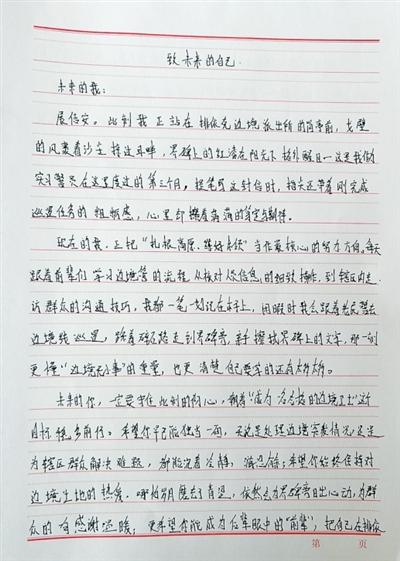 致未来的自己
未来的我:
展信安。此刻我正站在排依克边境派出所的岗亭前,戈壁
的风裹着沙尘掠过耳畔,界碑上的红漆在阳光下格外醒目—这是我做
实习警员在这里度过的第三个月。提笔写这封信时,指尖还带着刚完成
巡逻任务的粗糙感,心里却揣着满满的笃定与期待。
现在的我,正把“扎根高原、
当作最核心的努力方向。每天
跟着前辈们学习边境管控的流程,从核对人员信息的细致操作,到辖区内走
访群众的沟通技巧,我都一笔一划记在本子上,闲暇时我会跟着老民警去
边境线巡逻,踏着碎石路走到界碑旁,亲手擦拭界碑上的文字,那一刻
更懂“边境无小事”的重量,也更清楚自己要学的还有太多太多。
未来的你,一定要守住此刻的初心,朝着“成为合格的边境卫士”这个
目标稳步前行。希望你早已能独当一面,无论是处理边境突发情况,还是
为辖区群众解决难题,都能沉着冷静、
;希望你始终保持对
边境土地的热爱,哪怕岁月磨去了青涩,依然会为界碑旁日出心动,为群
众的一句感谢温暖;更希望你能成为后辈眼中的“前辈”,把自己在排依
第 页